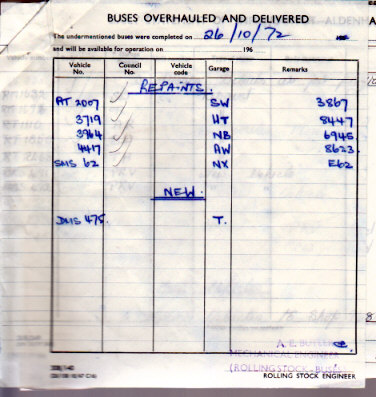 BUSES OVERHAULED AND DELIVERED
The undermentioned buses were completed on 26/10/72
and will be available for operation on 196
Vehicle No. Council No. Vehicle code Garage Remarks
REPAINTS.
RT 2007 SW 3867
3719 HT 8447
3964 NB 6945
4417 AW 8623
SMS 62 NX E62
NEW.
DMS 475 T.
MECHANICAL ENGINEER
(ROLLING STOCK - BUS)
ROLLING STOCK ENGINEER